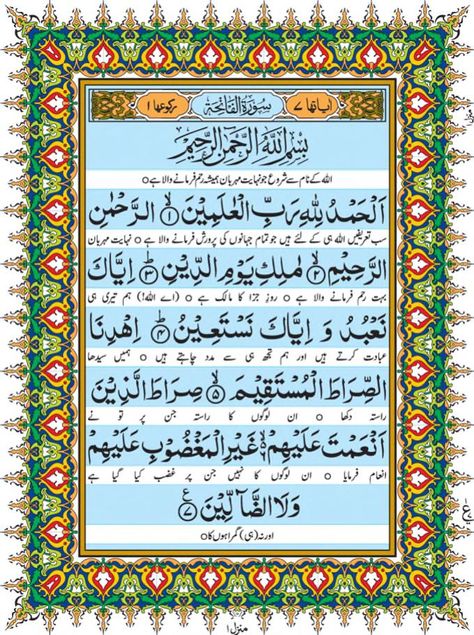 اٰیاتھا ۷ سُوْرَۃُ الْفَاتِحَۃِ رکوعھا ۱
بِسْمِ اللّٰهِ الرَّحْمٰنِ الرَّحِیْمِ
اللہ کے نام سے شروع جو نہایت مہربان ہمیشہ رحم فرمانے والا ہے ○
اَلْحَمْدُ لِلّٰهِ رَبِّ الْعٰلَمِیْنَ ۙ﴿۱﴾ الرَّحْمٰنِ
سب تعریفیں اللہ ہی کے لئے ہیں جو تمام جہانوں کی پرورش فرمانے والا ہے ○ نہایت مہربان
الرَّحِیْمِ ۙ﴿۲﴾ مٰلِكِ یَوْمِ الدِّیْنِ ؕ﴿۳﴾ اِیَّاكَ
بہت رحم فرمانے والا ہے ○ روزِ جزا کا مالک ہے ○ (اے اللہ!) ہم تیری ہی
نَعْبُدُ وَ اِیَّاكَ نَسْتَعِیْنُ ؕ﴿۴﴾ اِهْدِنَا
عبادت کرتے ہیں اور ہم تجھ ہی سے مدد چاہتے ہیں ○ ہمیں سیدھا
الصِّرَاطَ الْمُسْتَقِیْمَ ۙ﴿۵﴾ صِرَاطَ الَّذِیْنَ
راستہ دکھا ○ ان لوگوں کا راستہ جن پر تو نے
اَنْعَمْتَ عَلَیْهِمْ ۙ﴿۶﴾ غَیْرِ الْمَغْضُوْبِ عَلَیْهِمْ
انعام فرمایا ○ ان لوگوں کا نہیں جن پر غضب کیا گیا ہے
وَلَا الضَّآلِّیْنَ ﴿۷﴾ ع
اور نہ (ہی) گمراہوں کا ○
منزل ۱